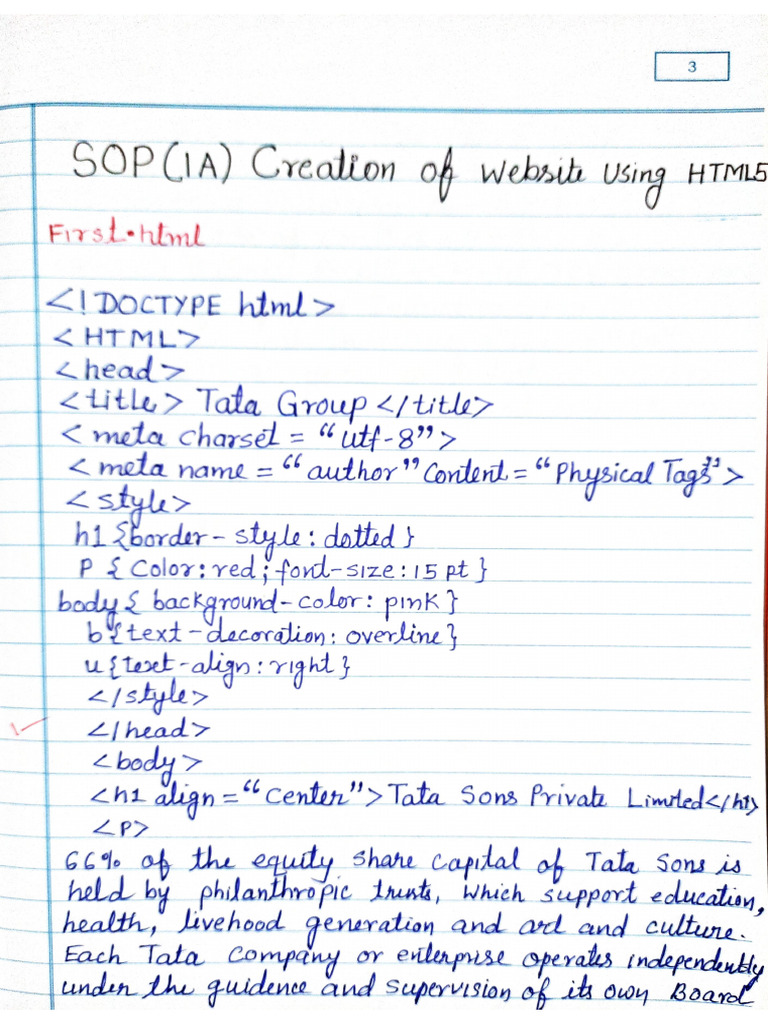 3
SOP(1A) Creation of Website Using HTML5
First.html
<!DOCTYPE html>
<HTML>
<head>
<title> Tata Group </title>
< meta charset = "utf-8">
< meta name = "author" Content = "Physical Tags">
< style>
h1 {border-style: dotted}
P { Color: red; font-size: 15 pt }
body{ background-color: pink}
b{text-decoration: overline}
u{text-align: right}
</style>
</head>
<body>
<h1 align = "Center">Tata Sons Private Limited</h1>
<P>
66% of the equity share capital of Tata Sons is
held by philanthropic trusts, which support education,
health, livehood generation and art and culture.
Each Tata Company or enterprise operates independently
under the guidence and supervision of its own Board